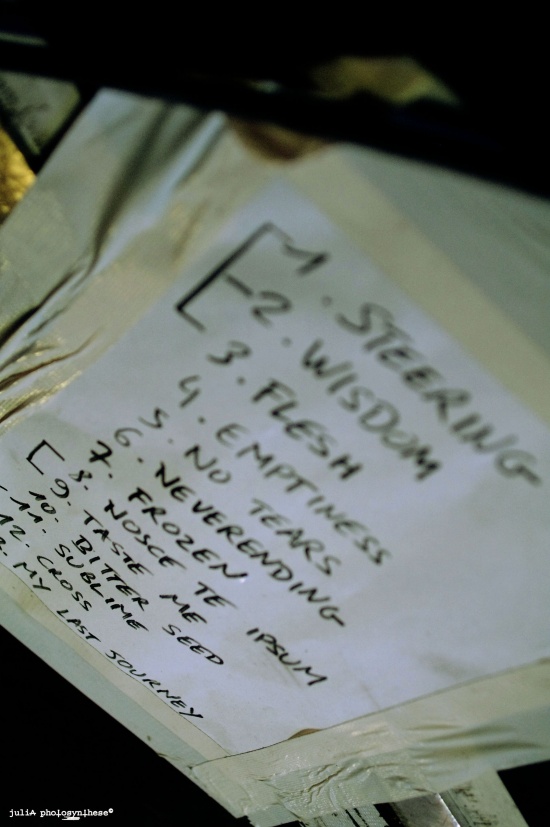 1. STEERING
2. WISDOM
3. FLESH
4. EMPTINESS
5. NO TEARS
6. NEVERENDING
7. FROZEN
8. NOSCE TE IPSUM
9. TASTE ME
10. BITTER SEED
11. SUBLIME
12 CROSS
3. MY LAST JOURNEY
juliA photosynthese©